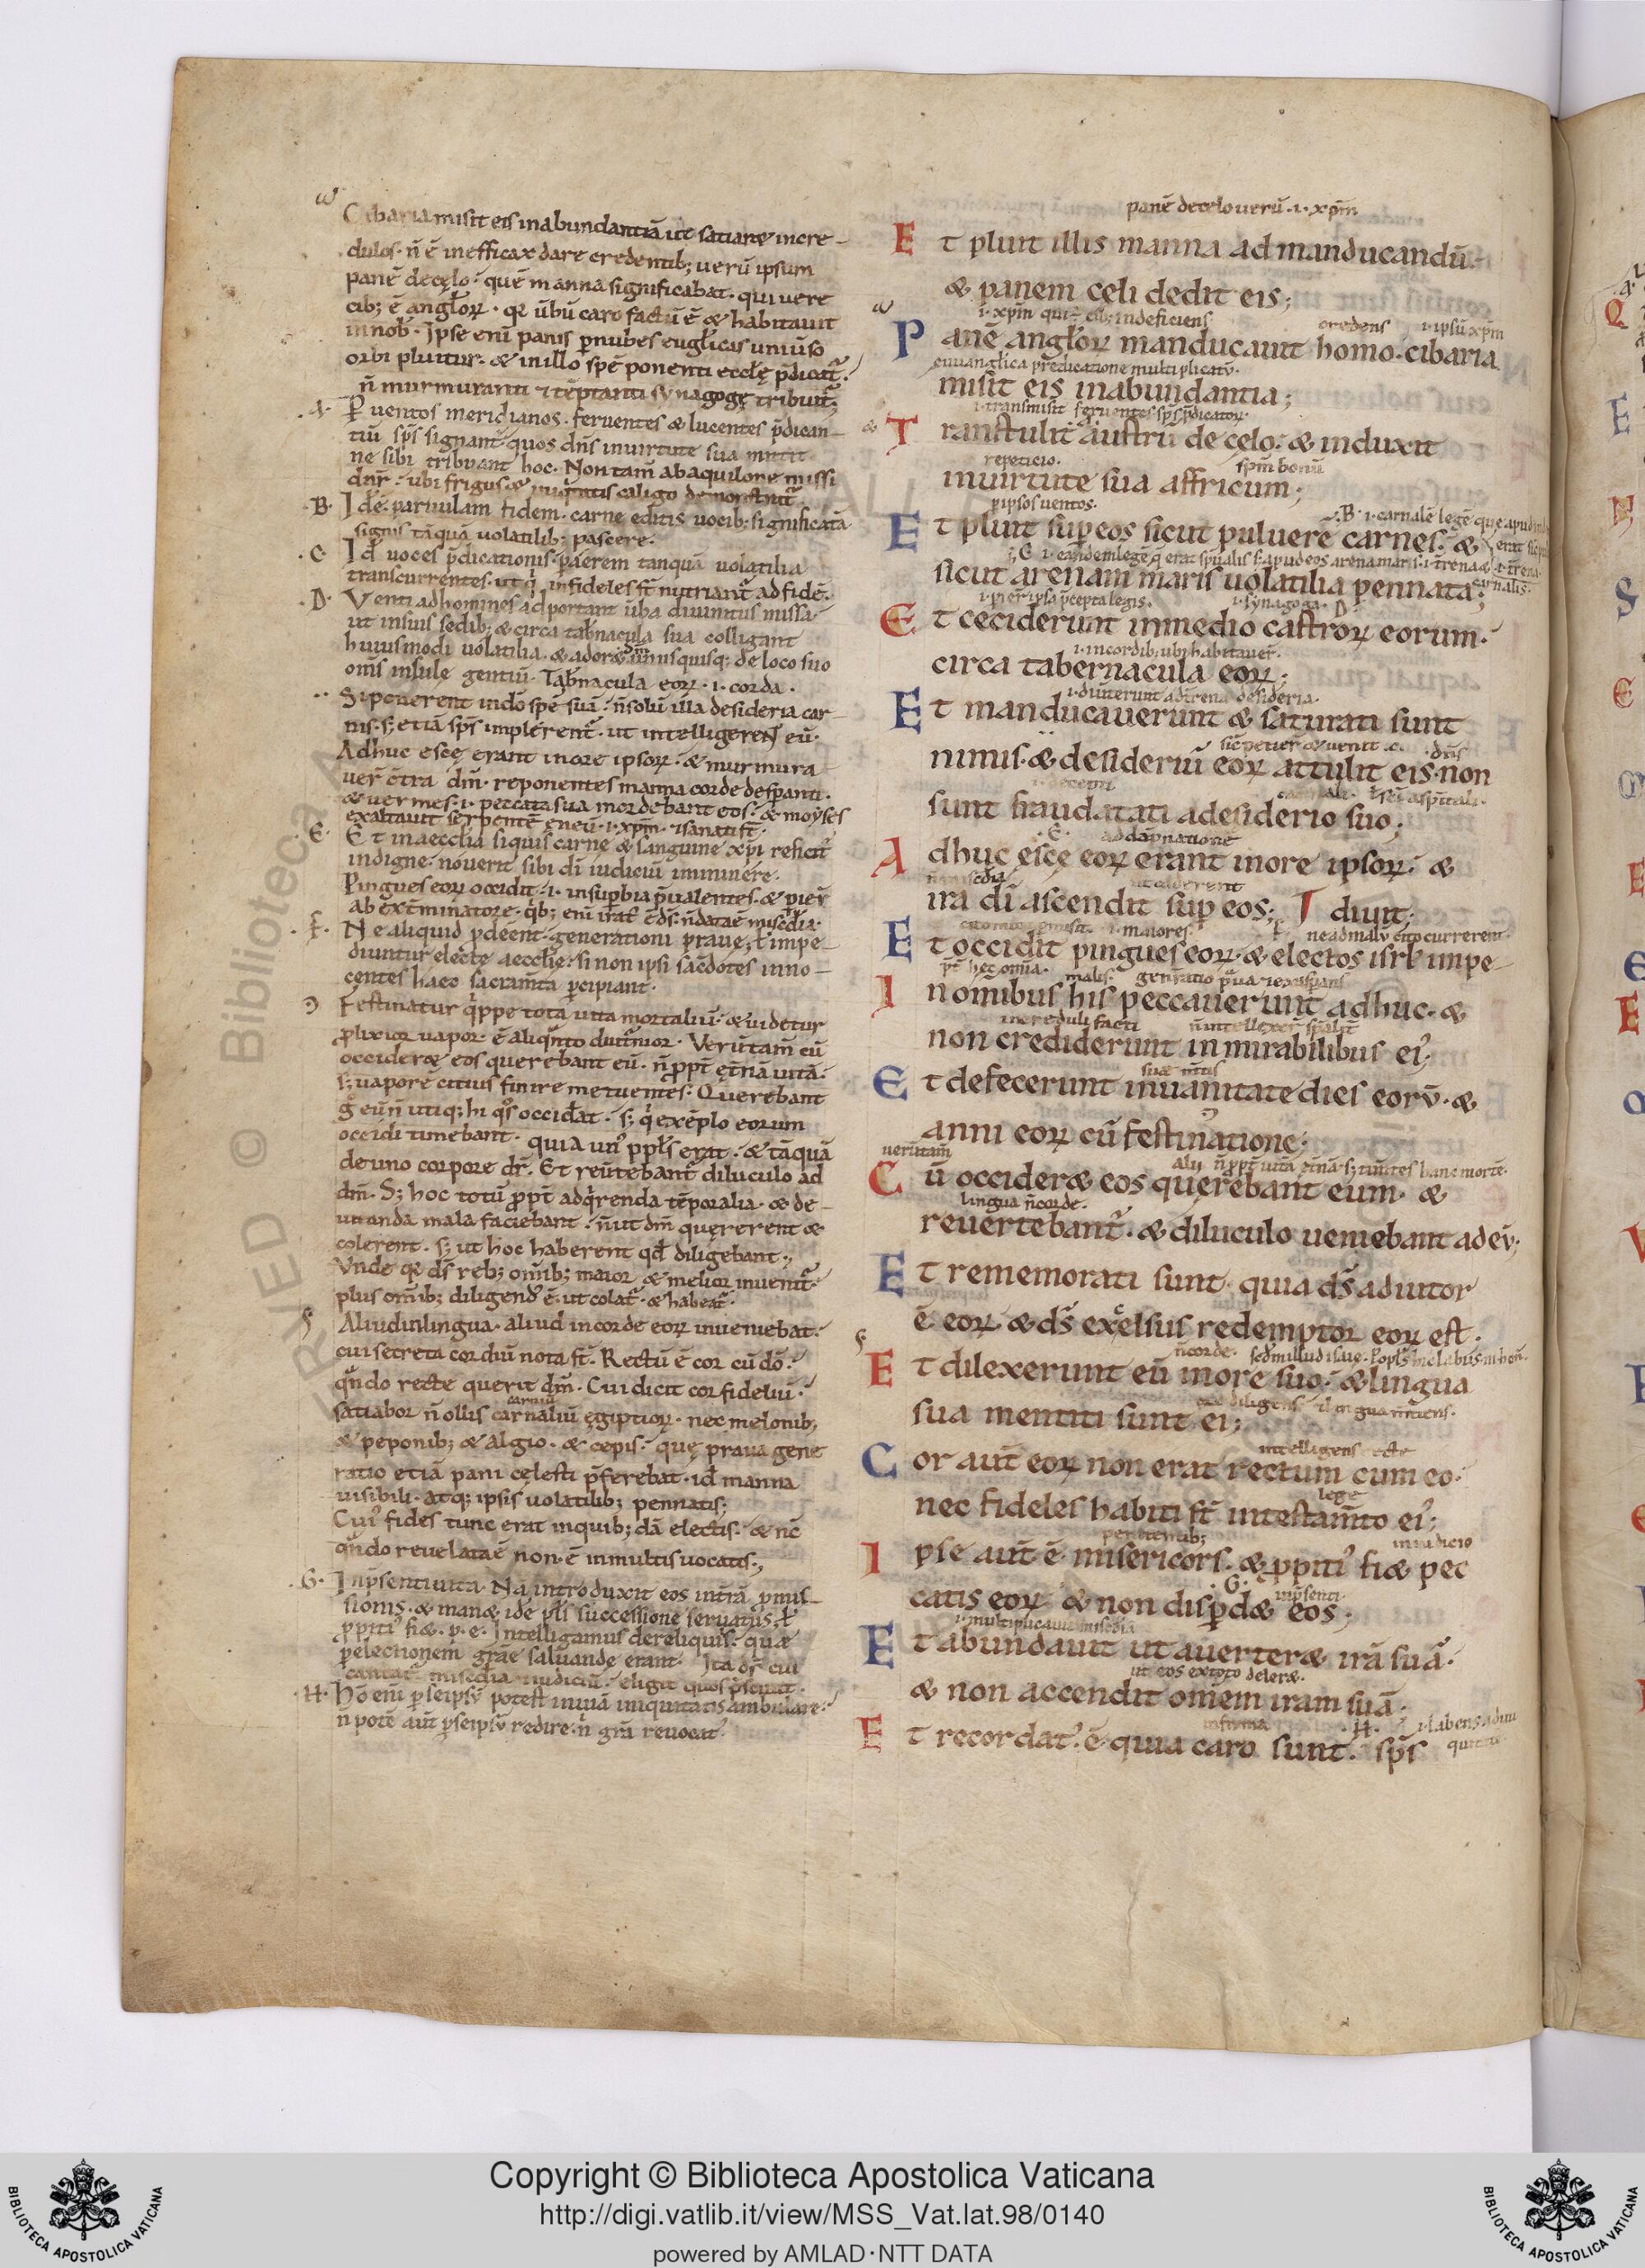 Cibaria misit eis inabundantiā ut satiaret incre-
dulos. n̄ ē inefficax dare credentib; uerū ipsum
panē decęlo. quē manna significabat. qui uere
cib; ē angl̄oꝝ. qꝛ ūbū caro factū ē & habitauit
innob̄. Ipse enī panis ꝑ nubes eugl̄icas uniūso
orbi pluitur. & inillo spē ponenti eccl̄ę p̄dicat᷑.
n̄ murmuranti & tēptanti synagogę tribuit᷑;
.A. Per uentos meridianos. feruentes & lucentes p̄dican-
tiū sp̄s signant quos dn̄s inuirtute sua
ne sibi tribuant hoc. Non tam̄ abaquilone missi
dn̄r. ubi frigus &
.B. Idē paruulam fidem. carne editis uocib; significatā
signis tāquā uolatilib; pascere.
.C. Id̄ uoces p̄dicationis. ꝑaerem tanquā uolatilia
transcurrentes. ut qͥ infideles st̄ nutriant᷑ adfidē.
.D. Venti adhomines adportant ūba diuinitus missa.
ut insuis sedib; & circa tab̄nacula sua colligant
huiusmodi uolatilia. & adoret unusquisq; de loco suo
om̄s insulę gentiū. Tab̄nacula eoꝝ .i. corda.
Si ponerent indō spē suā. n̄ solū illa desideria car-
nis. s; etiā sp̄s implerent᷑. ut intelligerent eū.
Adhuc escę erant inore ipsoꝝ. & murmura-
uer̄ c̄tra dm̄. reponentes manna corde
& uermes .i. peccata sua mordebant eos. & moyses
exaltauit serpentē ęneū .i. xp̄m. & sanati st̄.
.E. Et inaecclia siquis carne & sanguine xp̄i reficit᷑
indigne. nouerit sibi dī iudiciū imminere.
Pingues eoꝝ occidit .i. insuꝑbia p̄ualentes. &
ab ext̄minatore. qͥb;
.F. Ne aliquid ꝑdeent generationi prauę, ł impe-
diuntur electę aeccl̄ię. si non ipsi sac̄dotes inno-
centes haec sacram̄ta ꝑcipiant.
Festinatur qͥppe tota uita mortaliū. & uidetur
prolixior uapor ē aliqͣnto diut᷑nior. Verūtam̄ cū
occideret eos querebant eū. n̄ ꝓpt̄ ęt̄nā uitā.
s; uaporē citius finire metuentes. Querebant
g̊ eū n̄ utiq; hi qͦs occid̄at. s; qͥ exēplo eorum
occidi timebant. quia un᷒ ppl̄s erat. & tāquā
deuno corpore dr̄. Et reūtebant᷑ diluculo ad
dm̄. S; hoc totū ꝓpt̄ adqͥrenda tēporalia. & de-
uitanda mala faciebant. n̄ ut dm̄ quęrerent &
colerent. s; ut hoc haberent qd̄ diligebant;
Vnde qꝛ ds̄ reb; om̄ib; maior & melior inuenit᷑.
plus om̄ib; diligend᷒ ē. ut colat᷑. & habeat᷑.
Aliud inlingua. aliud incorde eoꝝ inueniebat.
cui secreta cordiū nota st̄. Rectū ē cor cū dō.
qͣndo recte querit dm̄. Cui dicit cor fideliū.
carniū
satiabor n̄ ollis carnaliū ęgiptioꝝ. nec melonib;
& peponib; & algio. & cepis. quę praua gene
ratio etiā pani cęlesti p̄ferebat. id̄ manna
uisibili. atq; ipsis uolatilib; pennatis;
Cui᷒ fides tunc erat inquib;dā electis. & nc̄
qͣndo reuelata ē non ē inmultis uocatis;
.G. Inp̄senti uita. Nā introduxit eos int̄rā ꝓmis-
sionis. & manet
ꝓpiti᷒ fi& .p.e. Intelligamus dereliquiis. quę
ꝑ electionem gratię saluandę erant. Ita ds̄ cui
cantat᷑ miscd̄ia & iudiciū. eligit quos
.H. Hō enī ꝑ seipsū potest inuiā iniquitatis ambulare.
n̄ potē aut̄ ꝑseipsū redire. n̄ gr̄a reuocat᷑
panē decęlo uerū .i. xp̄m
Et pluit illis manna admanducandū.
& panem celi dedit eis;
.i. xp̄m qui ē cib; indeficiens
credens .i. ipsū xp̄m
Panē angl̄oꝝ manducauit homo. cibaria
euuanglica p̄dicatione multiplicatū.
misit eis inabundantia;
.i. transmisit feruentes sp̄s p̄dicatoꝝ
Transtulit austrū de cęlo. & induxit
repeticio. sp̄m bonū
inuirtute sua affricum;
ꝑipsos uentos.
.B. .i. carnalē legē que apud
Et pluit suꝑ eos sicut puluerē carnes. &
.C. .i. eandem legē q̄ erat sp̄ualis
sicut arenam maris uolatilia pennata;
p̄cepta legis. .i. synagoga. D
Et ceciderunt inmedio castroꝝ eorum.
.i. incordib; ubi habitauer̄.
circa tabernacula eoꝝ;
desideria.
Et manducauerunt & saturati sunt
sic̄ petier̄ & uenit dn̄s
nimis. & desideriū eoꝝ attulit eis. non
sunt fraudatati adesiderio suo;
.E. addāpnationē
Adhuc escę eoꝝ erant inore ipsoꝝ. &
ira dī ascendit suꝑ eos; DIuiit;
.i. maiores. ne ad malū cito currerent
Et occidit pingues eoꝝ. & electos isrl̄ impe-
p̄t hęc om̄ia. malis.
In omibus his peccauerunt adhuc. &
increduli facti n̄ intellexer̄ sp̄alit̄
non crediderunt in mirabilibus ei᷒;
suę m̄tis
Et defecerunt inuanitate dies eorū. &
anni eoꝝ cū festinatione;
uerūtam̄
alii n̄ ꝓpt̄ uitā ęt̄nā. s; timētes hanc mortē.
Cū occideret eos quęrebant eum. &
lingua n̄ corde.
reuertebant᷑. & diluculo ueniebant adeū;
Et rememorati sunt quia ds̄ adiutor
ē eoꝝ. & ds̄ excelsus redemptor eoꝝ est.
n̄ corde. scdm̄ illud isaię. Popl̄s hic labiis m hon̄.
Et dilexerunt eū inore suo. & lingua
sua mentiti sunt ei;
intelligens
Cor aut̄ eoꝝ non erat rectum cum eo.
lege
nec fideles habiti st̄ intestam̄to ei᷒;
penitentib; iniudicio
Ipse aut̄ ē misericors. & ꝓpiti᷒ fi& pec
.G. inp̄senti.
catis eoꝝ. & non disꝑd& eos;
.i. multiplicauit miscd̄ia
Et abundauit ut auerteret irā suā.
ut eos extoto deleret.
& non accendit om̄em iram suā.
infirma .H.
Et recordat᷒ ē quia caro sunt. sp̄s
Copyright © Biblioteca Apostolica Vaticana
http://digi.vatlib.it/view/MSS_Vat.lat.98/0140
powered by AMLAD·NTT DATA
BIBLIOTECA APOSTOLICA VATICANA
BIBLIOTECA APOSTOLICA VATICANA